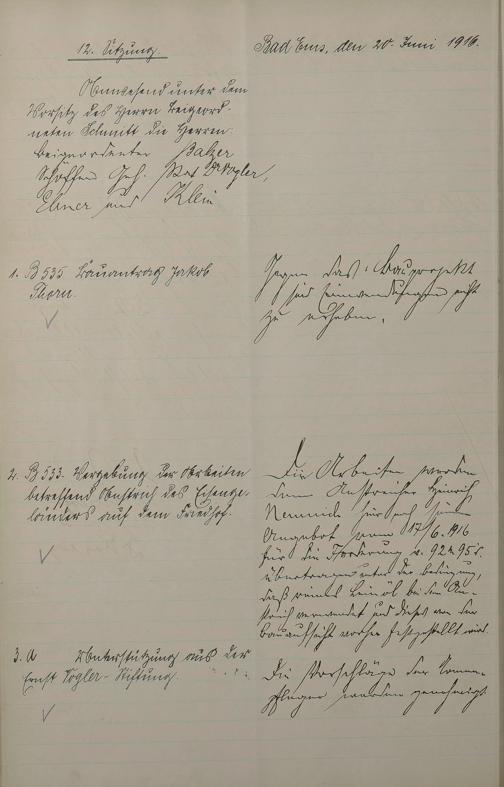 12. Sitzung.
Bad Ems, den 20. Juni 1916.
Anwesend unter dem
Vorsitz des Herrn Beigeord-
neten Schmitt die Herren:
Beigeordneter Balzer
Schöffen Geh. Rat Dr Vogler,
Ebner und Klein
1. B 535 Bauantrag Jakob
Thorn.
Gegen das Bauprojekt
sind Einwendungen nicht
zu erheben.
2. B 533. Vergebung der Arbeiten
betreffend Anstrich des Eisenge-
länders auf dem Friedhof.
Die Arbeiten werden
dem Anstreicher Heinrich
auf sein
Angebot vom 17/6. 1916
für die Forderung v. 92 M 95 d.
übertragen unter der Bedingung,
daß reines Leinöl bei dem An-
strich verwendet und dieses von der
Bauaufsicht vorher festgestellt wird.
3. A Unterstützung aus der
Ernst Vogler-Stiftung.
Die Vorschläge der Armen-
pfleger werden genehmigt